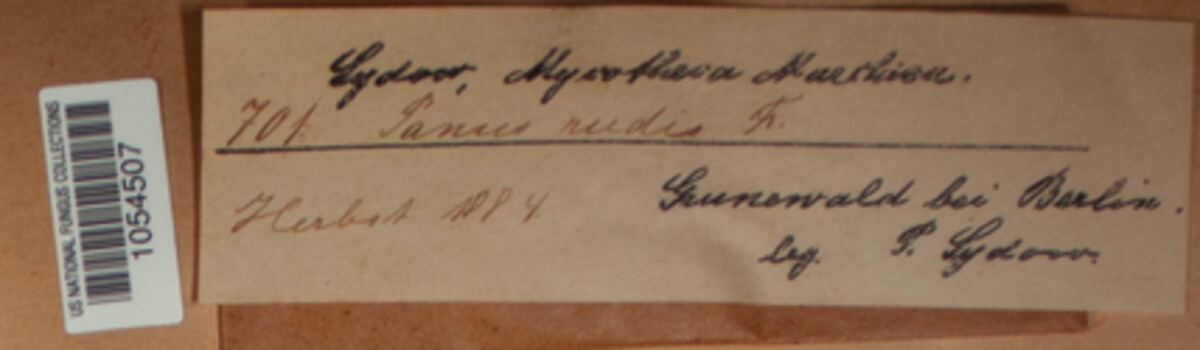 US NATIONAL FUNGUS COLLECTIONS
1054507
Sydow, Mycotheca Marchica.
701. Panus rudis F.
Herbst 1884
Grunewald bei Berlin.
leg. P. Sydow.